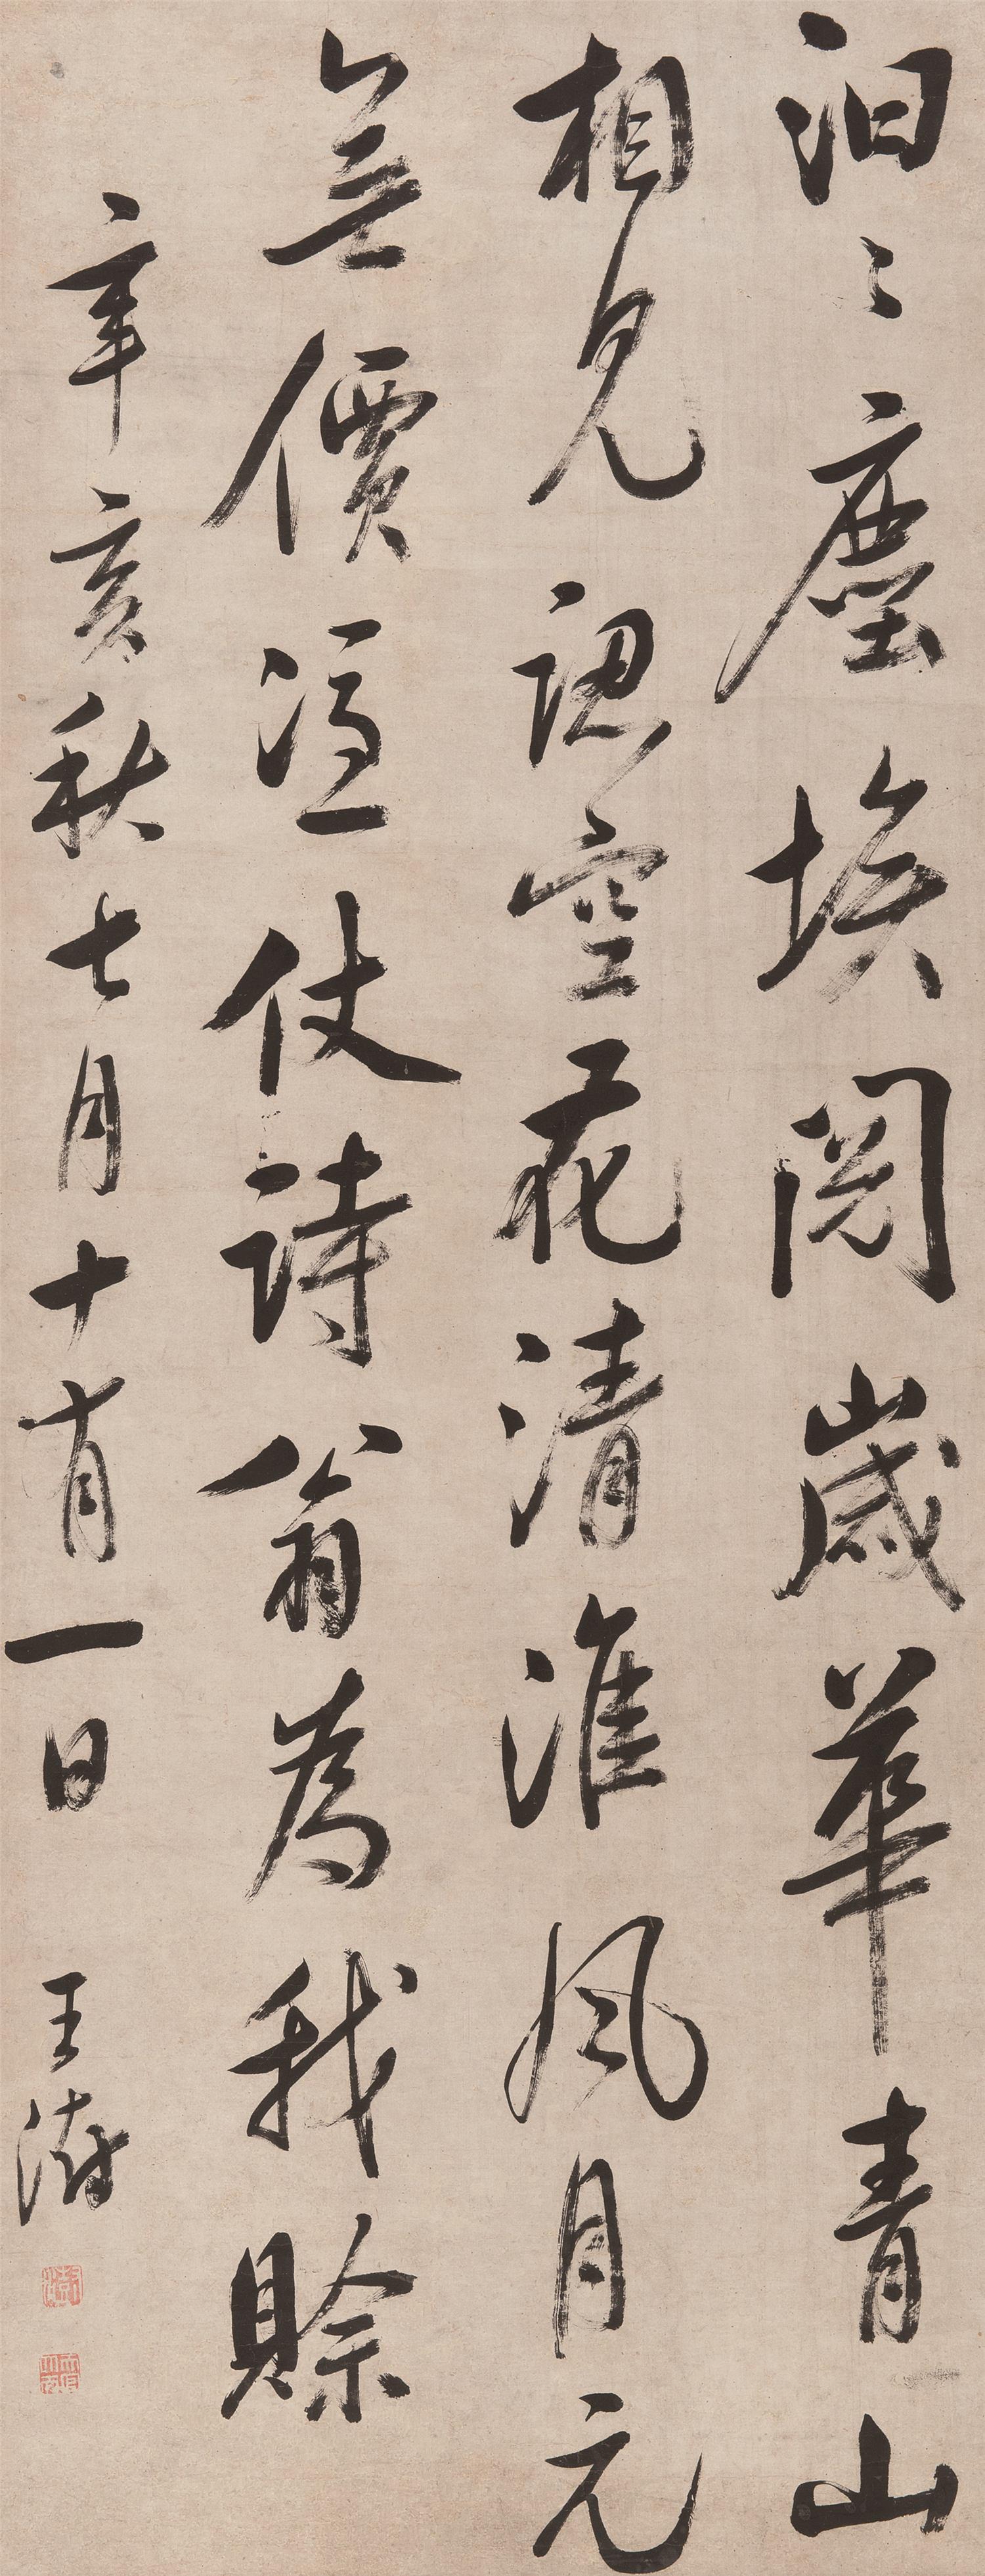 汩〻塵埃閱歲華青山
相見認空花清淮風月元
無價憑仗詩翁為我賒
辛亥秋七月十有一日 王澍